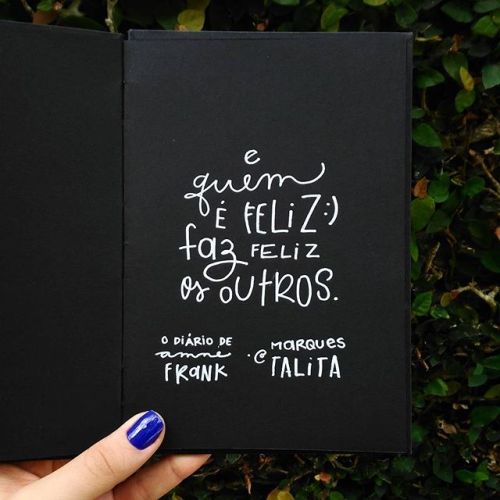 e
quem
É FELIZ :)
faz FELIZ
os OUTROS.
O DIÁRIO DE
anne
FRANK
·@ MARQUES
TALITA